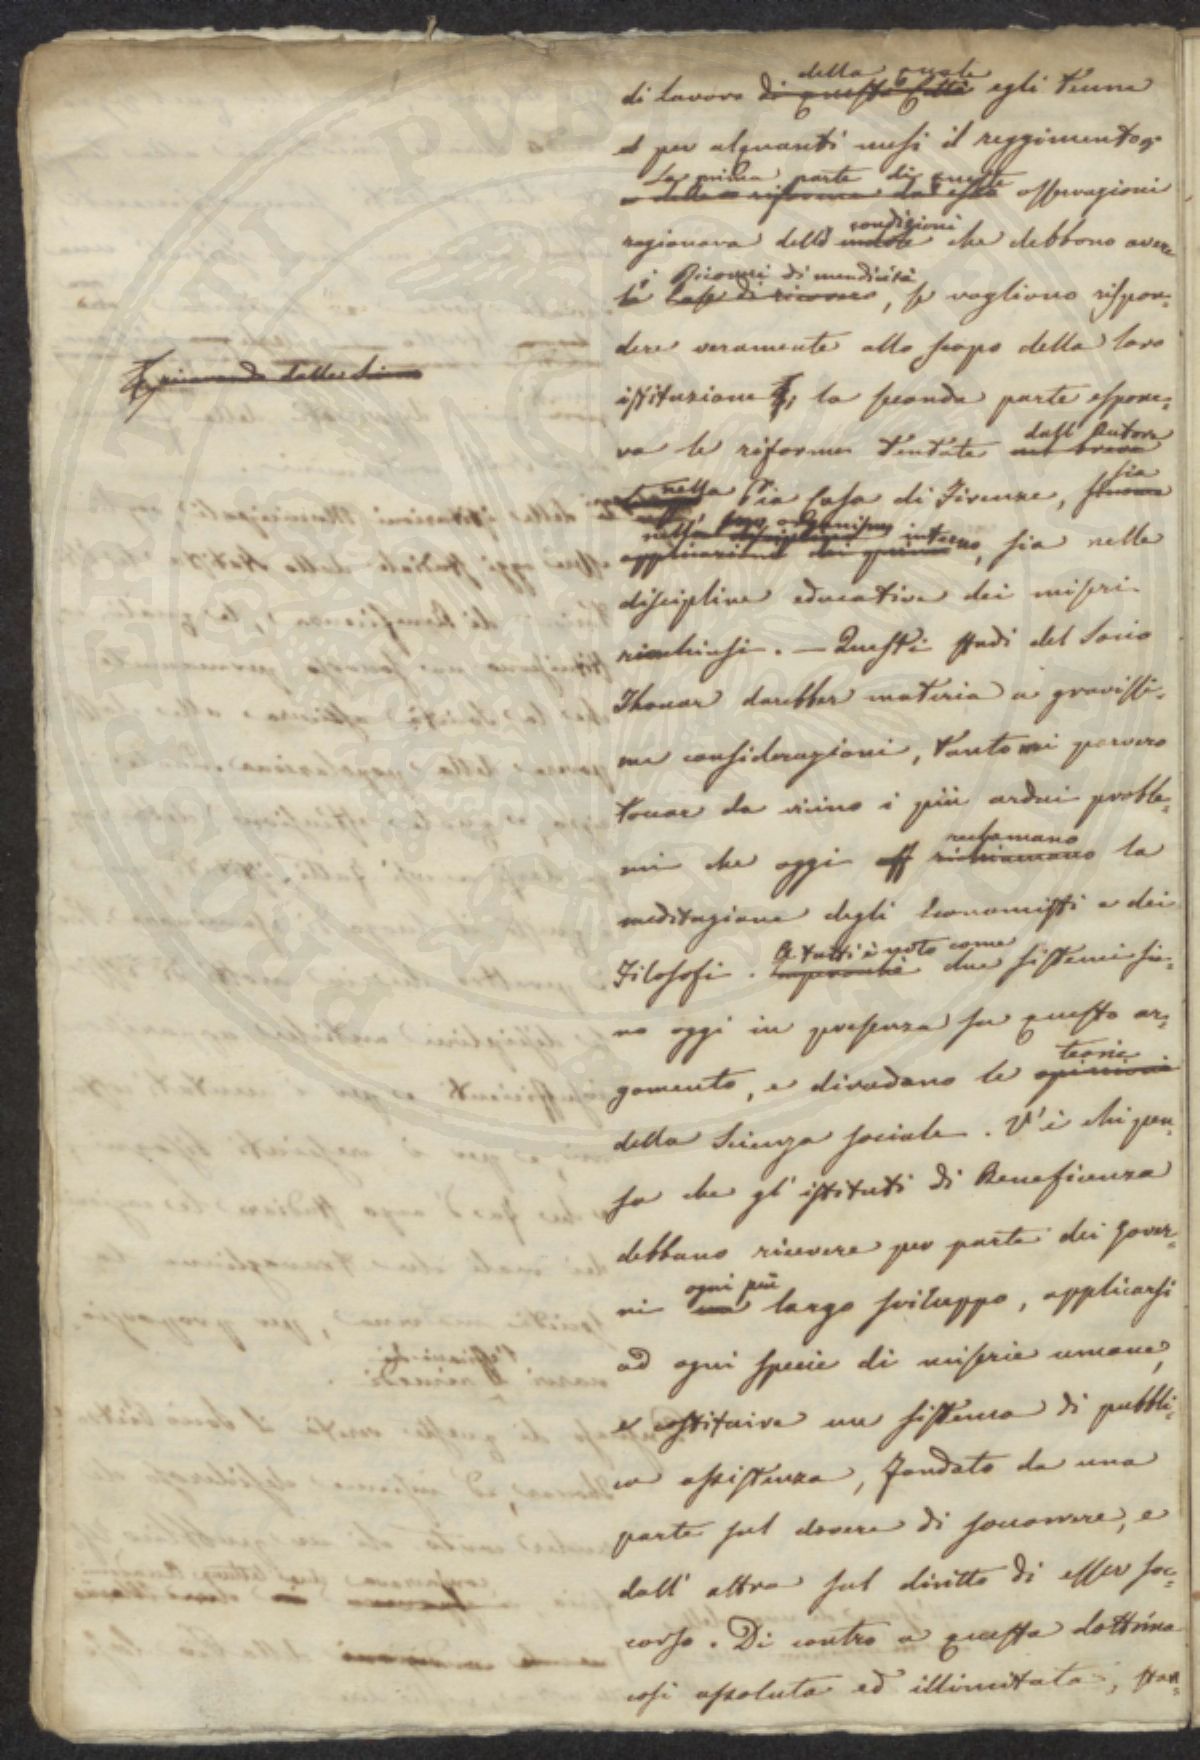 della quale
di lavoro di questa Città egli tenne
e per alquanti mesi il reggimento.
La prima parte di queste
e della riforma da essa osservazioni
ragionava delle condizioni che debbono avere
i Ricoveri di mendicità
le Case di ricovero, se vogliono rispon=
dere veramente allo scopo della loro
istituzione, la seconda parte espone=
va le riforme tentate dall'Autore
nella Pia Casa di Firenze, sia
nell' organismo interno, sia nelle
discipline educative dei miseri
rinchiusi. — Questi studi del Socio
Thouar darebber materia a gravissi=
me considerazioni, tanto mi parvero
toccar da vicino i più ardui proble=
mi che oggi richiamano la
reclamano
meditazione degli Economisti e dei
Filosofi. A tutti è noto come due sistemi sie=
no oggi in presenza su questo ar=
gomento, e dividano le opinioni
teorie
della Scienza sociale. V'è chi pen=
sa che gl'istituti di Beneficenza
debbano ricevere per parte dei Gover=
ni ogni più largo sviluppo, applicarsi
ad ogni specie di miserie umane,
e costituire un sistema di pubbli=
ca assistenza, fondato da una
parte sul dovere di soccorrere, e
dall'altra sul diritto di esser soc=
corso. Di contro a questa dottrina
così assoluta ed illimitata, stan=